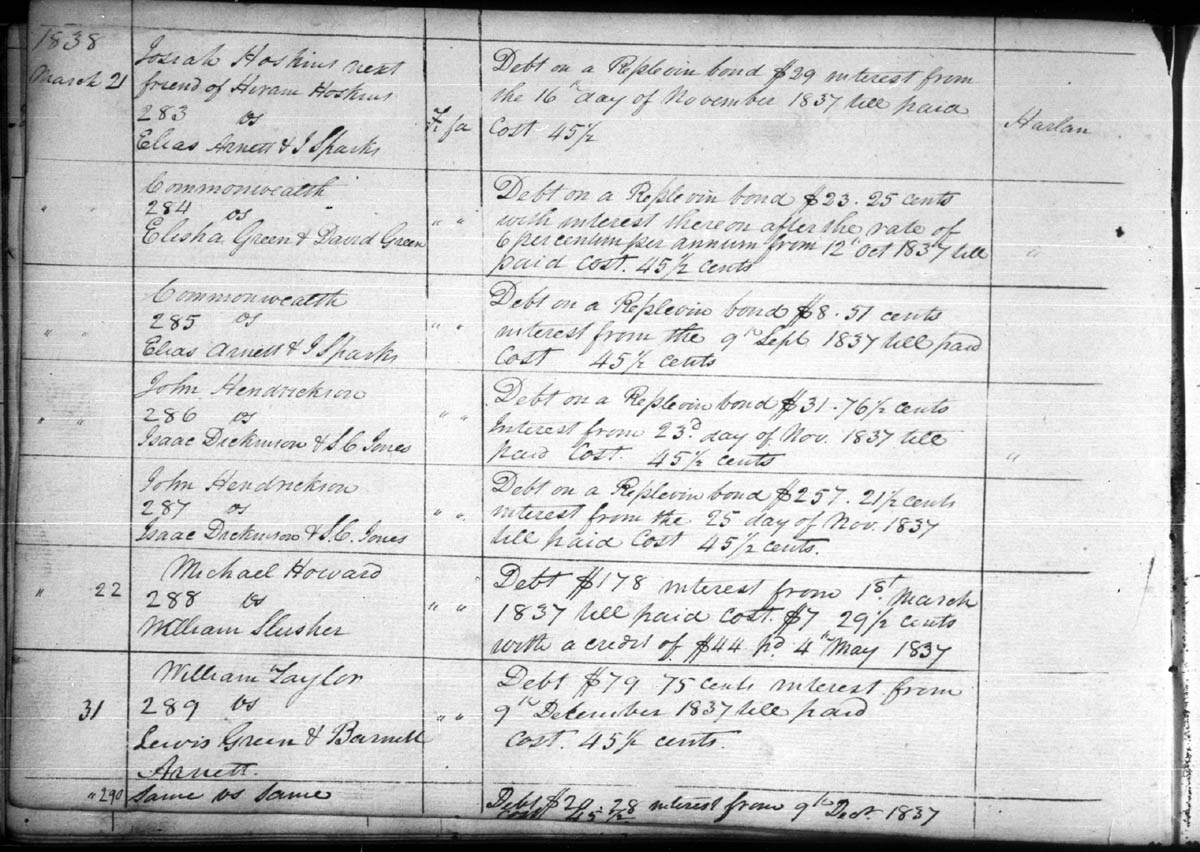 1838
March 21
Josiah Hoskins next
friend of Hiram Hoskins
283 vs
Elias Arnett & J Sparks
Fi fa
Debt on a Replevin bond $29 interest from
the 16th day of November 1837 till paid
Cost 45½
Harlan
" "
Commonwealth
284 vs
Elisha Green & David Green
" "
Debt on a Replevin bond $23.25 cents
with interest thereon after the rate of
6 per centum per annum from 12th Oct 1837 till
paid cost. 45½ cents
"
" "
Commonwealth
285 vs
Elias Arnett & J Sparks
" "
Debt on a Replevin bond $8.51 cents
interest from the 9th Sept 1837 till paid
Cost 45½ cents
" "
John Hendrickson
286 vs
Isaac Dickinson & S. C. Jones
" "
Debt on a Replevin bond $31.76½ cents
Interest from 23d day of Nov. 1837 till
paid Cost 45½ cents
"
John Hendrickson
287 vs
Isaac Dickinson & S. C. Jones
" "
Debt on a Replevin bond $257.21½ cents
interest from the 25 day of Nov. 1837
till paid Cost 45½ cents.
" 22
Michael Howard
288 vs
William Slusher
" "
Debt $178 interest from 1st March
1837 till paid Cost. $7 29½ cents
with a credit of $44 pd. 4th May 1837
31
William Taylor
289 vs
Lewis Green & Barnett
Arnett.
" "
Debt $79 75 cents interest from
9th December 1837 till paid
Cost. 45½ cents.
" 290
Same vs Same
Debt $20.28 interest from 9th Decr. 1837
Cost 45½